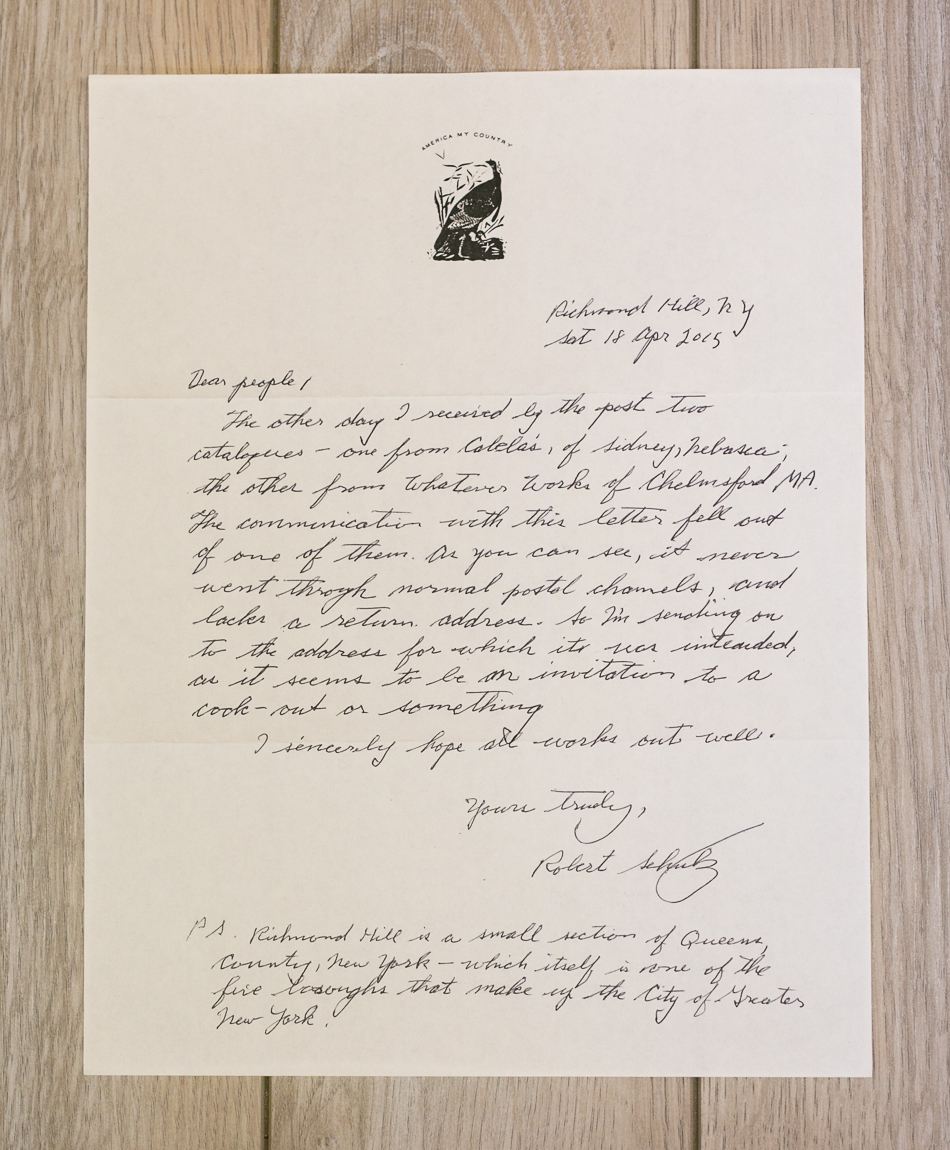 AMERICA MY COUNTRY
Richmond Hill, NY
Sat 18 Apr 2015
Dear people,
The other day I received by the post two
catalogues – one from Cabela's, of Sidney, Nebasca;
the other from Whatever Works of Chelmsford MA.
The communication with this letter fell out
of one of them. As you can see, it never
went through normal postal channels, and
lacks a return address. So I'm sending on
to the address for which its was intended,
as it seems to be an invitation to a
cook-out or something
I sincerely hope all works out well.
Yours truly,
Robert Schultz
P.S. Richmond Hill is a small section of Queens,
County, New York – which itself is one of the
five boroughs that make up the City of Greater
New York.